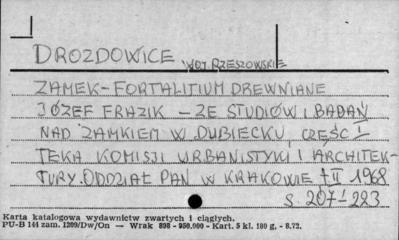 DROZDOWICE WOJ. RZESZOWSKIE
ZAMEK - FORTALITIUM DREWNIANE
JÓZEF FRAZIK - ZE STUDIÓW I BADAŃ
NAD ZAMKIEM W DUBIECKU, CZĘŚĆ I
TEKA KOMISJI URBANISTYKI I ARCHITEK-
TURY. ODDZIAŁ PAN W KRAKOWIE T II 1968
S 207-223
Karta katalogowa wydawnictw zwartych i ciągłych.
PU-B 144 zam. 1209/Dw/On — Wrak 898 - 950.000 - Kart. 5 kl. 180 g. - 8.72.